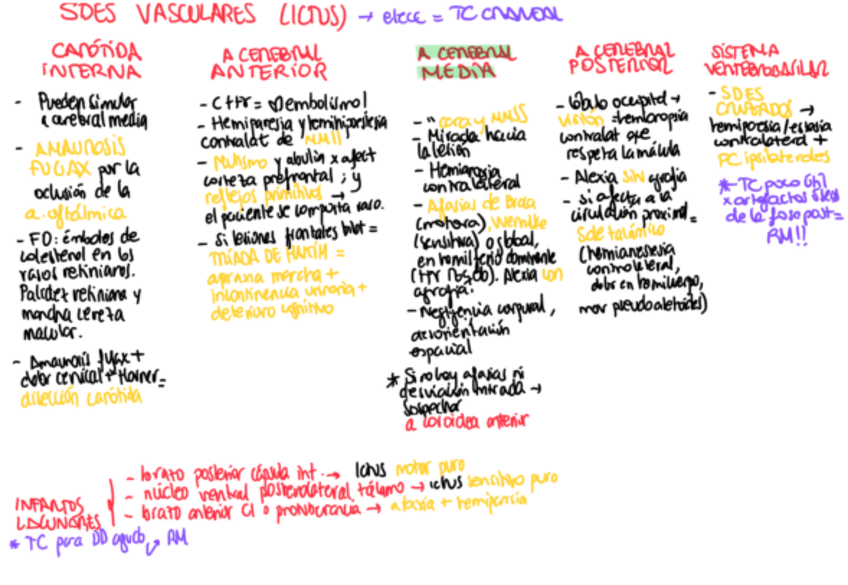 SDES VASCULARES (ICTUS) → elecc = TC CRANEAL
CARÓTIDA
INTERNA
- Pueden simular
a cerebral media
- AMAUROSIS
FUGAX por la
oclusión de la
a. oftálmica
- FO: émbolos de
colesterol en los
vasos retinianos.
Palidez retiniana y
mancha cereza
macular.
- Amaurosis fugax +
dolor cervical + Horner =
disección carótida
A CEREBRAL
ANTERIOR
- CHPR = embolismo!
- Hemiparesia y hemihipoestesia
contralat de MMII
- Mutismo y abulia x afect
corteza prefrontal ; y
reflejos primitivos →
el paciente se comporta raro.
- Si lesiones frontales bilat =
TRÍADA DE HAKIM =
apraxia marcha +
incontinencia urinaria +
deterioro cognitivo
A CEREBRAL
MEDIA
- " cara y MMSS
- Mirada hacia
la lesión
- Hemianopsia
contralateral
- Afasias de Broca
(motora), Wernike
(sensitiva) o global,
en hemisferio dominante
Alexia con
agrafia.
- Negligencia corporal,
desorientación
espacial
* Si no hay afasias ni
desviación mirada →
sospechar
a coroidea anterior
A CEREBRAL
POSTERIOR
- lóbulo occipital →
visión = hemianopsia
contralat que
respeta la mácula
- Alexia sin agrafia
- si afecta a la
circulación proximal =
Sde talámico
(hemianestesia
contralateral,
dolor en hemicuerpo,
mov pseudoatetoides)
SISTEMA
VERTEBROBASILAR
- SDES
CRUZADOS →
hemiparesia/estesia
contralateral +
PC ipsilaterales
* TC poco útil
x artefactos óseos
de la fosa post =
RM!!
INFARTOS
LACUNARES
- brazo posterior cápsula int. → ictus motor puro
- núcleo ventral posterolateral tálamo → ictus sensitivo puro
- brazo anterior CI o protuberancia → ataxia + hemiparesia
* TC para DD agudo, RM